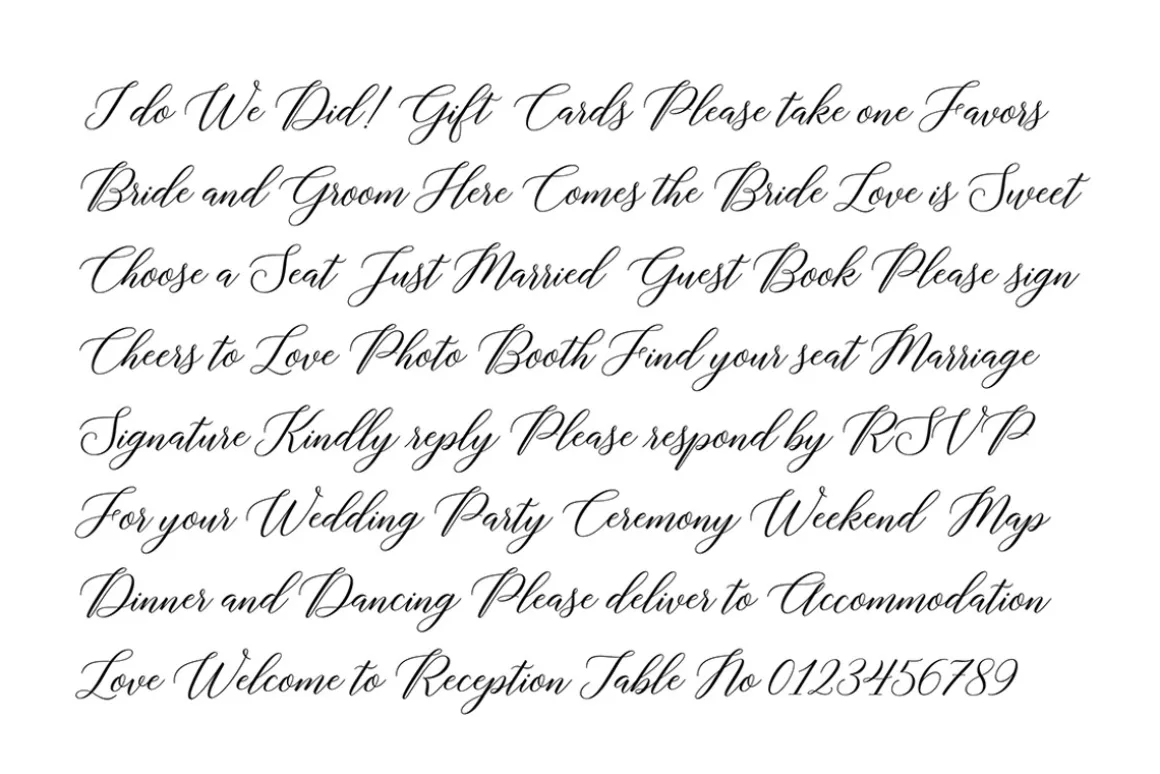 I do We Did! Gift Cards Please take one Favors
Bride and Groom Here Comes the Bride Love is Sweet
Choose a Seat Just Married Guest Book Please sign
Cheers to Love Photo Booth Find your seat Marriage
Signature Kindly reply Please respond by RSVP
For your Wedding Party Ceremony Weekend Map
Dinner and Dancing Please deliver to Accommodation
Love Welcome to Reception Table No 0123456789